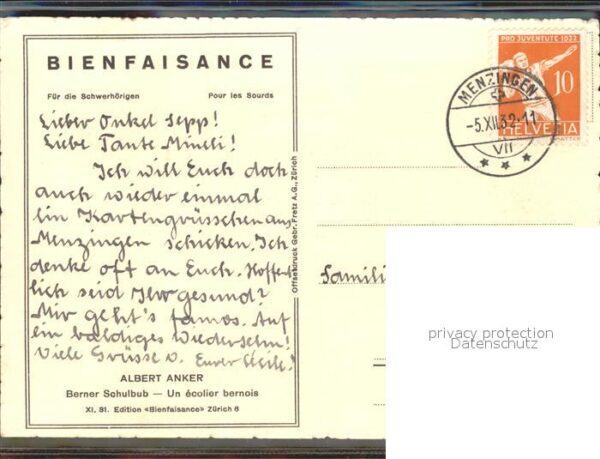 BIENFAISANCE
Für die Schwerhörigen Pour les Sourds
Lieber Onkel Sepp!
Liebe Tante Mineli!
Ich will Euch doch
auch wieder einmal
ein Kartengrüsschen aus
Menzingen schicken. Ich
denke oft an Euch. Hoffent
lich seid Ihr gesund?
Mir geht's famos. Auf
ein baldiges Wiedersehn!
Viele Grüsse v. Eurer Cécile!
ALBERT ANKER
Berner Schulbub — Un écolier bernois
XI. 31. Edition «Bienfaisance» Zürich 6
Offsetdruck Gebr. Fretz A.G., Zürich
PRO JUVENTUTE 1932
10
HELVETIA
MENZINGEN
-5.XII.32-11
VII
Famili
privacy protection
Datenschutz